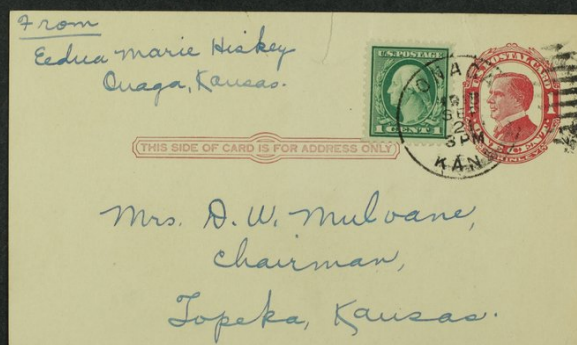 From
Eedua Marie Hiskey
Onaga, Kansas.
U.S. POSTAGE
1 CENT 1
ONAGA
SE
2
3 PM
KAN
THIS SIDE OF CARD IS FOR ADDRESS ONLY
Mrs. D. W. Mulvane,
Chairman,
Topeka, Kansas.